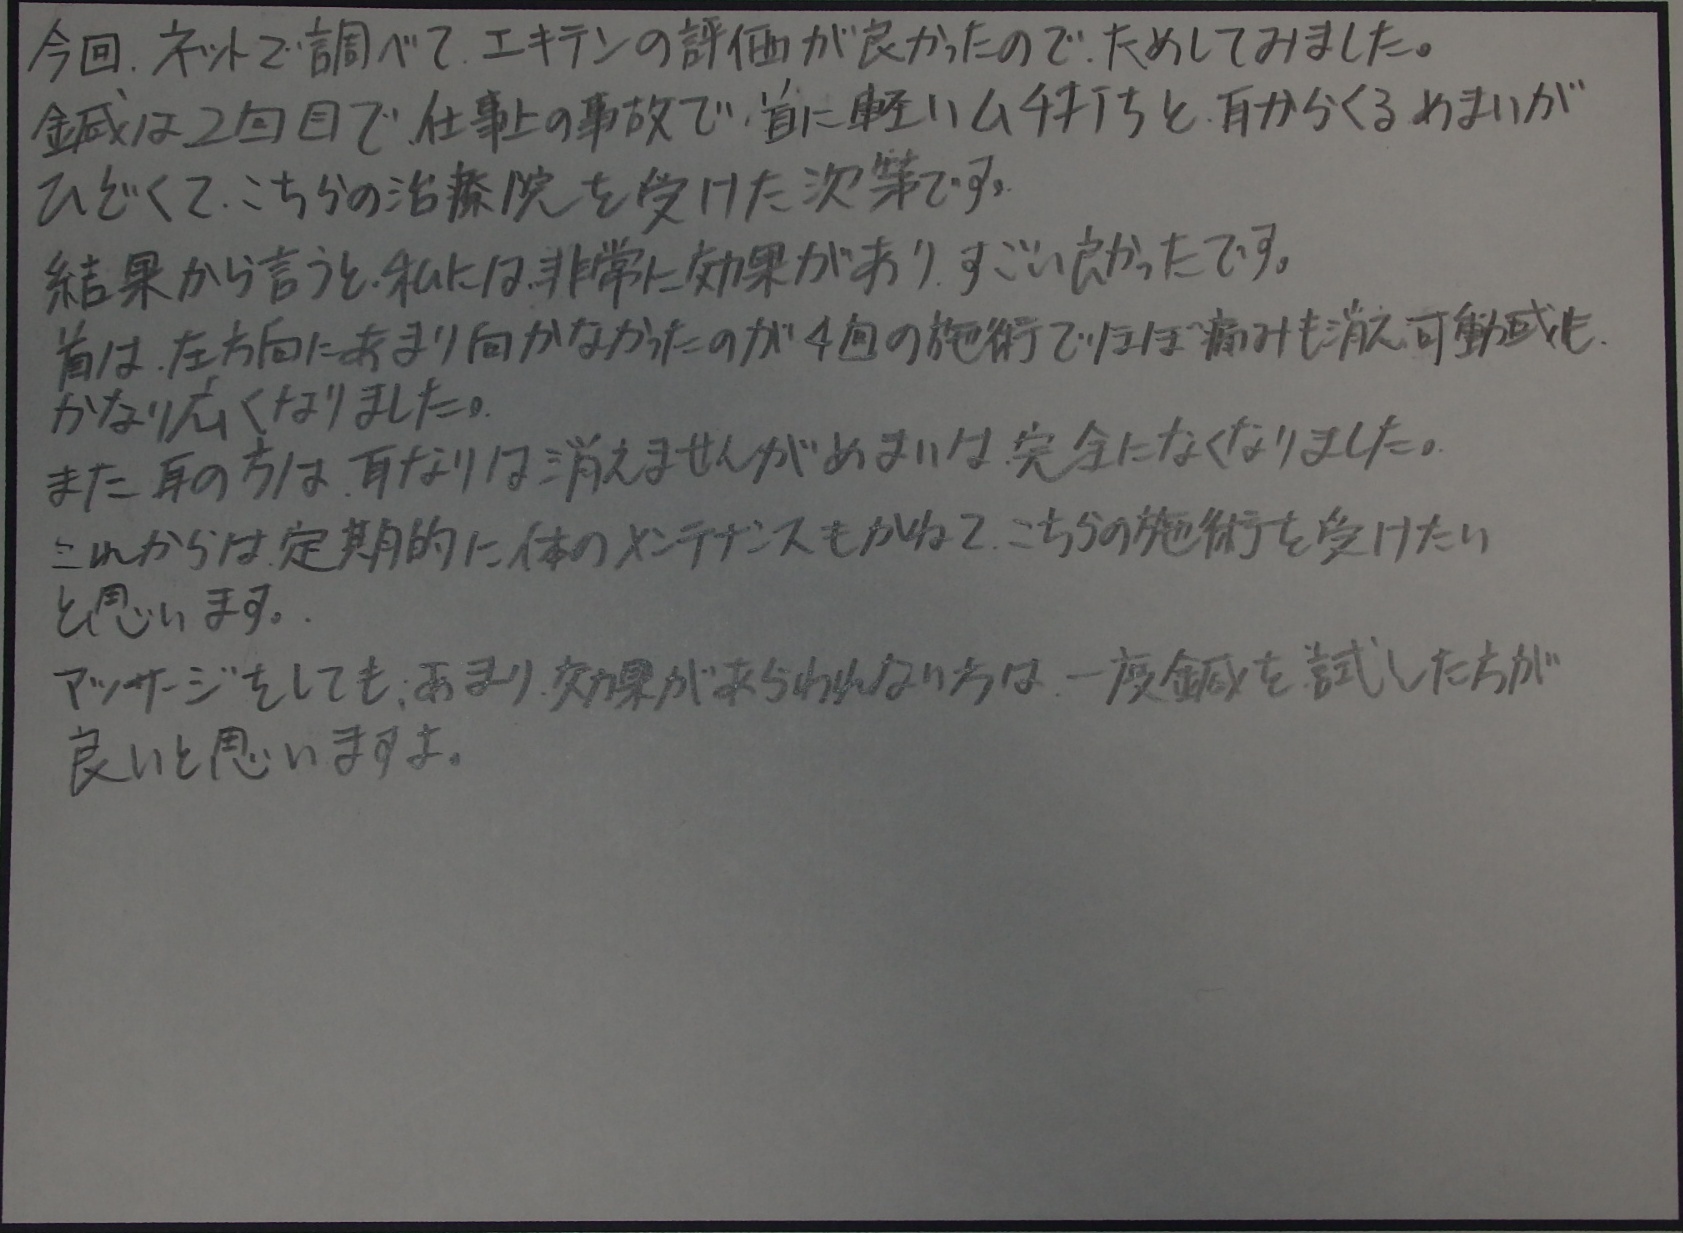 今回、ネットで調べて、エキテンの評価が良かったので、ためしてみました。
鍼は2回目で、仕事上の事故で、首に軽いムチ打ちと、耳からくるめまいが
ひどくて、こちらの治療院を受けた次第です。
結果から言うと、私には、非常に効果があり、すごい良かったです。
首は、左方向にあまり向かなかったのが4回の施術でほぼ痛みも消え、可動域も、
かなり広くなりました。
また耳の方は、耳なりは消えませんがめまいは、完全になくなりました。
これからは、定期的に体のメンテナンスもかねて、こちらの施術を受けたい
と思います。
マッサージをしても、あまり効果があらわれない方は、一度鍼を試した方が
良いと思いますよ。